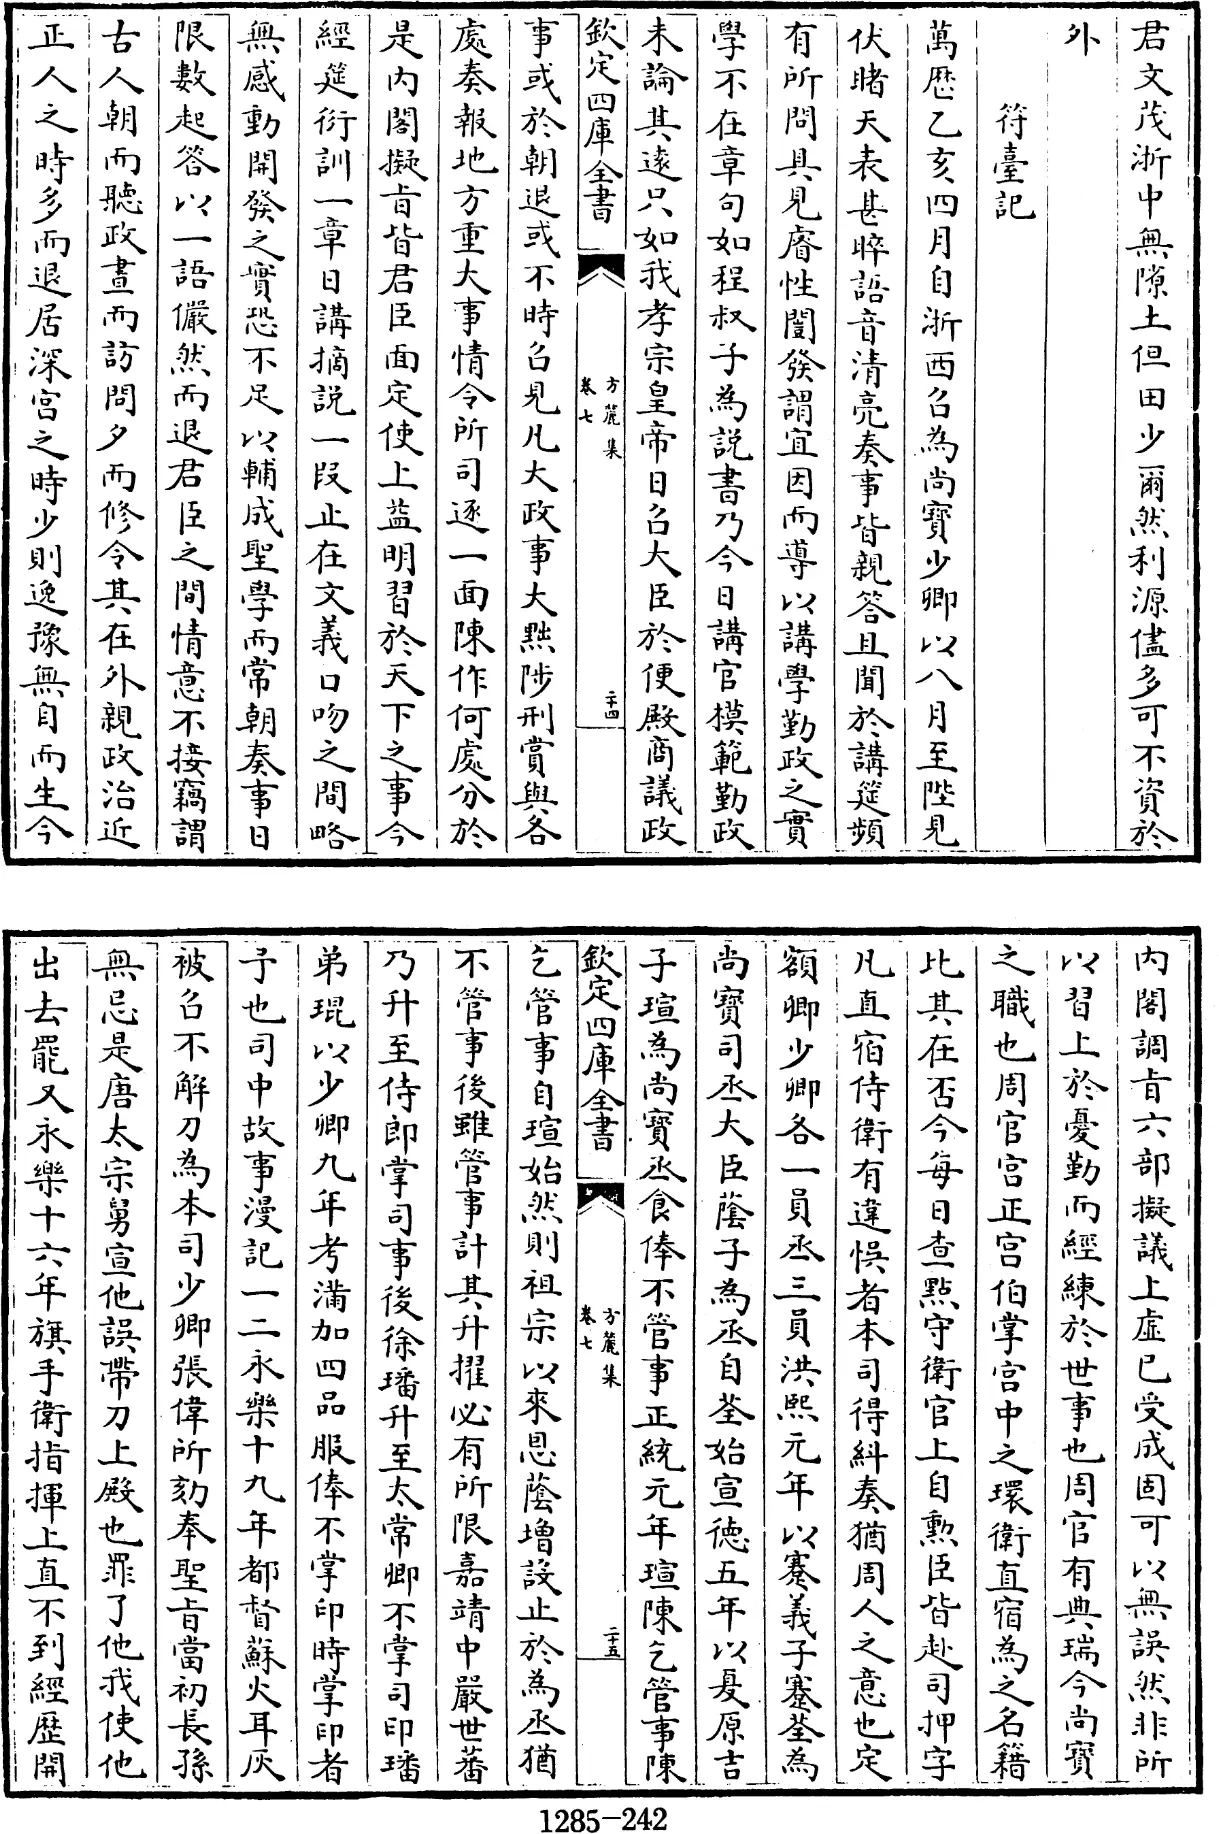 君文茂浙中無隙土但田少爾然利源儘多可不資於
外
符臺記
萬歷乙亥四月自浙西召為尚寳少卿以八月至陛見
伏睹天表甚睟語音清亮奏事皆親答且聞於講筵頻
有所問具見睿性闓發謂宜因而導以講學勤政之實
學不在章句如程叔子為説書乃今日講官模範勤政
未論其遠只如我孝宗皇帝日召大臣於便殿商議政
欽定四庫全書
方麓集
卷七
二十四
事或於朝退或不時召見凡大政事大黜陟刑賞與各
處奏報地方重大事情令所司逐一面陳作何處分於
是内閣擬旨皆君臣面定使上益明習於天下之事今
經筵衍訓一章日講摘説一段止在文義口吻之間略
無感動開發之實恐不足以輔成聖學而常朝奏事日
限數起答以一語儼然而退君臣之間情意不接竊謂
古人朝而聽政晝而訪問夕而修令其在外親政治近
正人之時多而退居深宫之時少則逸豫無自而生今
内閣調旨六部擬議上虚已受成固可以無誤然非所
以習上於憂勤而經練於世事也周官有典瑞今尚寳
之職也周官宫正宫伯掌宫中之環衛直宿為之名籍
比其在否今每日查點守衛官上自勲臣皆赴司押字
凡直宿侍衛有違悮者本司得糾奏猶周人之意也定
額卿少卿各一員丞三員洪熙元年以蹇義子蹇荃為
尚寳司丞大臣蔭子為丞自荃始宣徳五年以夏原吉
子瑄為尚寳丞食俸不管事正統元年瑄陳乞管事陳
欽定四庫全書
方麓集
卷七
二十五
乞管事自瑄始然則祖宗以來恩蔭増設止於為丞猶
不管事後雖管事計其升擢必有所限嘉靖中嚴世蕃
乃升至侍郎掌司事後徐璠升至太常卿不掌司印璠
弟琨以少卿九年考滿加四品服俸不掌印時掌印者
予也司中故事漫記一二永樂十九年都督蘇火耳灰
被召不解刀為本司少卿張偉所劾奉聖旨當初長孫
無忌是唐太宗舅宣他誤帶刀上殿也罪了他我使他
出去罷又永樂十六年旗手衛指揮上直不到經歷開
1285-242